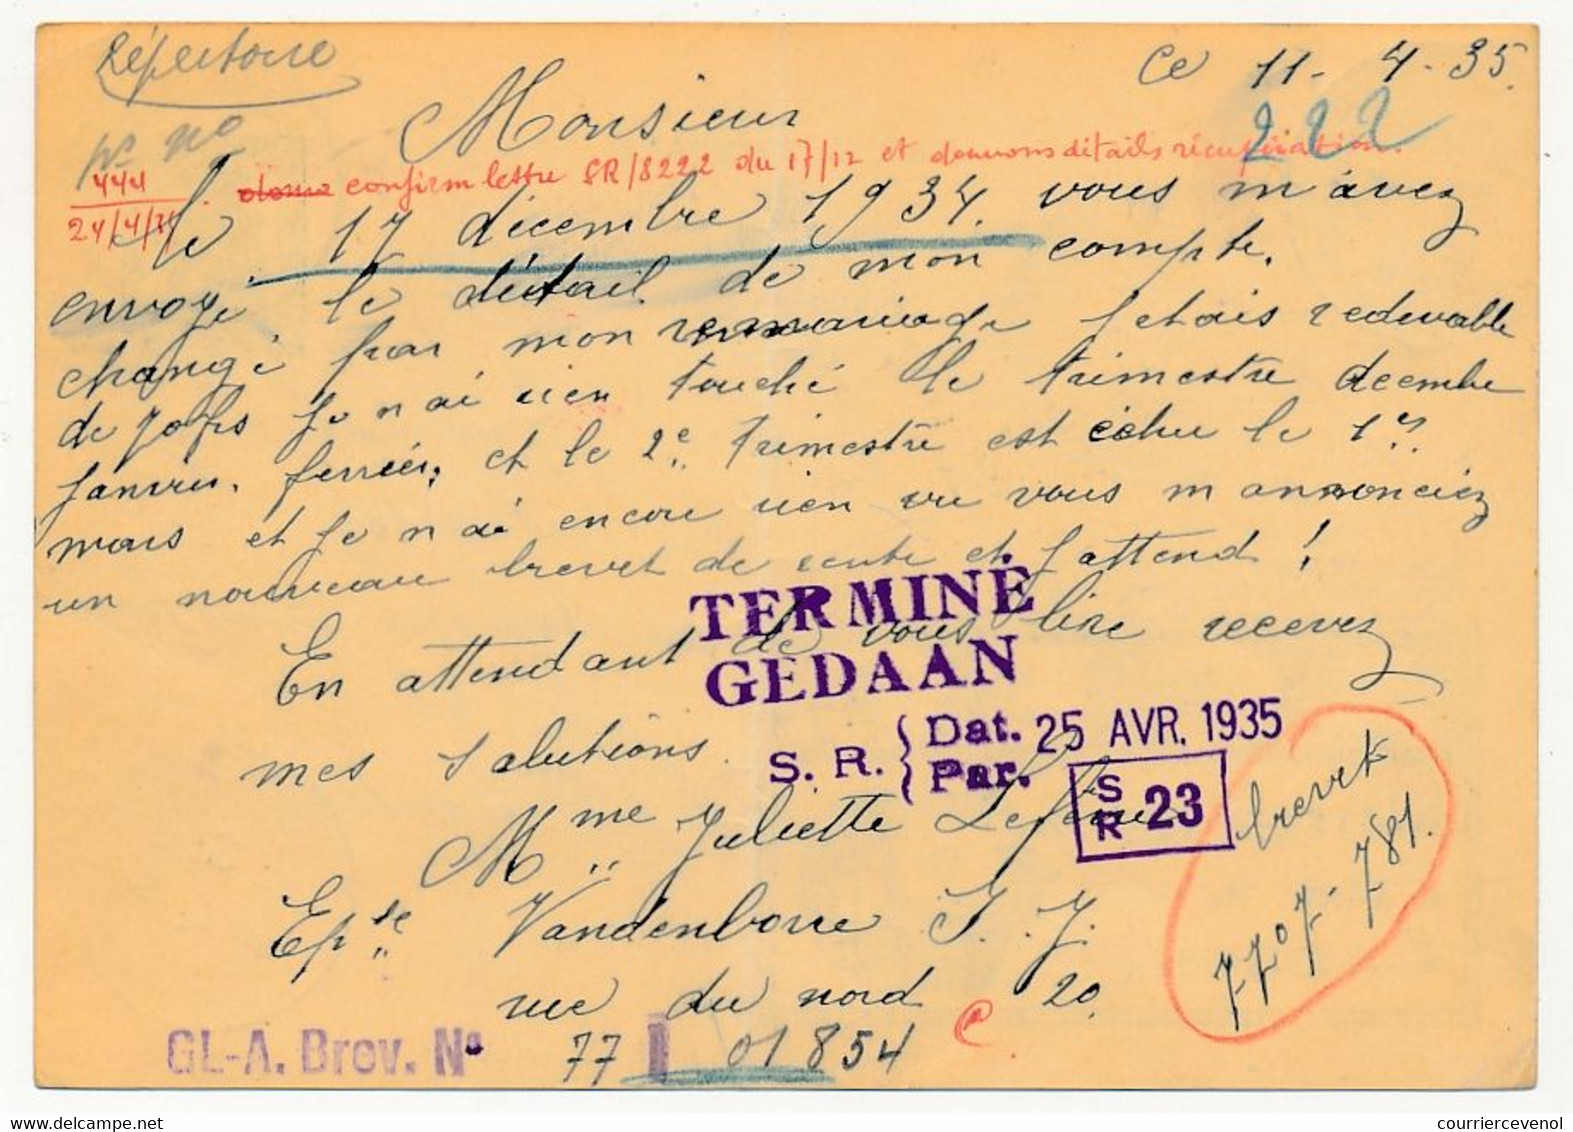 Répertoire
Ce 11-4-35.
Monsieur
222
444
confirm lettre SR/8222 du 17/12 et donnons détails récupération.
24/4/35
le 17 décembre 1934. vous m'avez
envoyé le détail de mon compte.
changé par mon remariage jetais redevable
de 70frs je n ai rien touché le trimestre decembre
janvier. fevrier, et le 2e trimestre est échu le 1er
mars et je n ai encore rien vu vous m annonciez
un nouveau brevet de rente et j attend !
En attendant de vous lire recevez
mes salutions.
TERMINÉ
GEDAAN
S. R. { Dat. 25 AVR. 1935
Par.
S R 23
Mme Juliette Lefevre
Epse Vandenborre J. J.
rue du nord 20.
brevet
7707-781.
GL-A. Brev. No 77 01854
www.courriercevenol.com